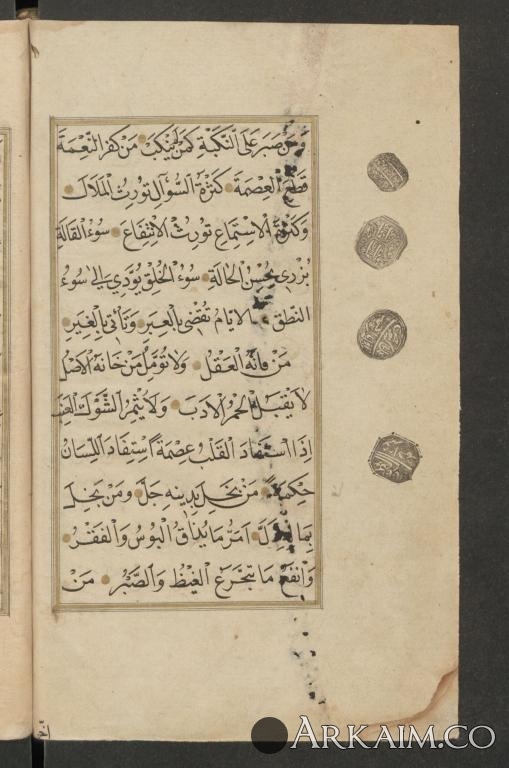 وَمَنْ صَبَرَ عَلَى النَّكْبَةِ كَمَنْ لَمْ يُنْكَبْ مَنْ كَفَرَ النِّعْمَةَ
قَطَعَ الْعِصْمَةَ كَثْرَةُ السُّؤَالِ تُورِثُ الْمَلَالَ
وَكَثْرَةُ الْاِسْتِمَاعِ تُورِثُ الْاِنْتِفَاعَ سُوءُ الْقَالَةِ
يُزْرِي بِحُسْنِ الْحَالَةِ سُوءُ الْخُلْقِ يُؤَدِّي إِلَى سُوءِ
النُّطْقِ الْاَيَّامُ تُفْضِي بِالْعِبَرِ وَتَأْتِي بِالْغِيَرِ
مَنْ فَاتَهُ الْعَقْلُ وَلَا تُؤَمِّلْ مَنْ خَانَهُ الْاَصْلُ
لَا يَقْبَلُ الْحُمُرُ الْاَدَبَ وَلَا يُثْمِرُ الشَّوْكُ الْعِنَبَ
إِذَا اسْتَفَادَ الْقَلْبُ عِصْمَةً اسْتَفَادَ اللِّسَانُ
حِكْمَةً مَنْ بَخِلَ بِدِينِهِ جَلَّ وَمَنْ بَخِلَ
بِمَالِهِ ذَلَّ اَمَرُّ مَا يُذَاقُ الْبُؤْسُ وَالْفَقْرُ
وَاَنْفَعُ مَا يُتَجَرَّعُ الْغَيْظُ وَالصَّبْرُ مَنْ
ARKAIM.CO